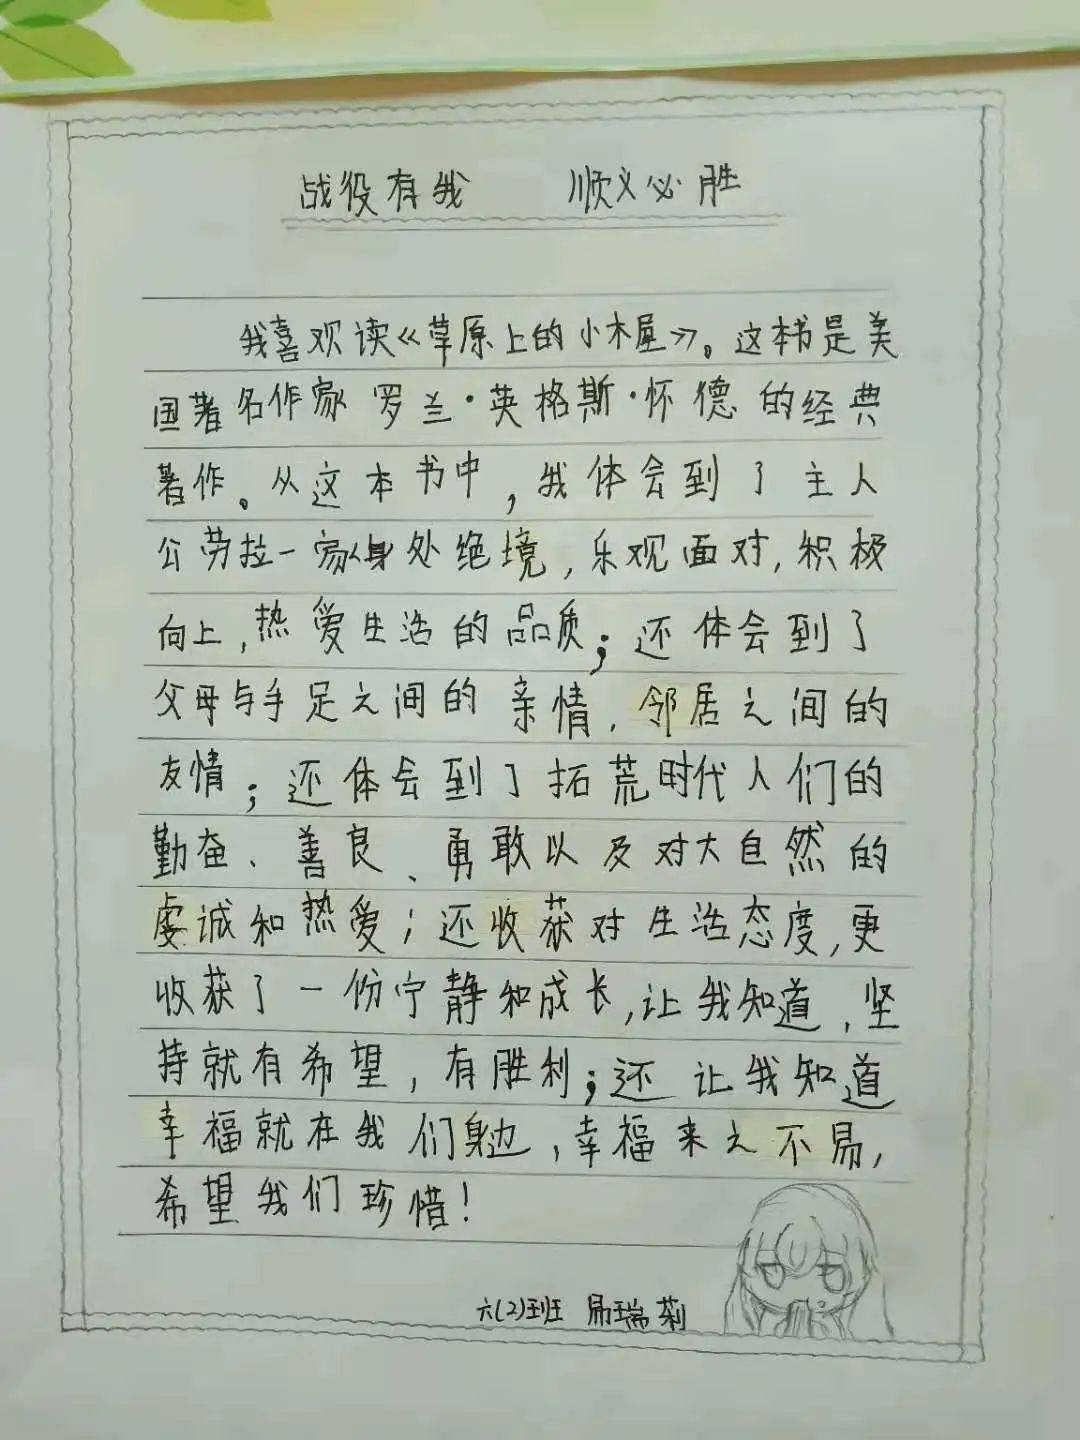 战役有我 顺义必胜
我喜欢读《草原上的小木屋》。这本书是美
国著名作家罗兰·英格斯·怀德的经典
著作。从这本书中，我体会到了主人
公劳拉一家身处绝境，乐观面对，积极
向上，热爱生活的品质；还体会到了
父母与手足之间的亲情，邻居之间的
友情；还体会到了拓荒时代人们的
勤奋、善良、勇敢以及对大自然的
虔诚和热爱；还收获对生活态度，更
收获了一份宁静和成长，让我知道，坚
持就有希望，有胜利；还让我知道
幸福就在我们身边，幸福来之不易，
希望我们珍惜！
六(2)班 易瑞莉